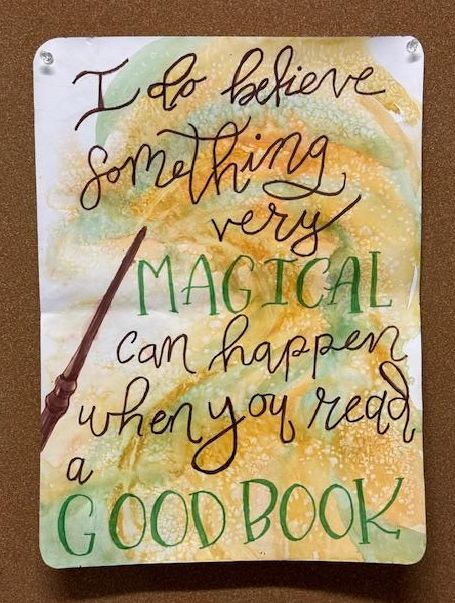 I do believe
something
very
MAGICAL
can happen
when you read
a
GOOD BOOK